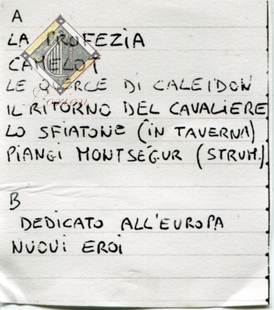 A
LA PROFEZIA
CAMELOT
LE QUERCE DI CALEIDON
IL RITORNO DEL CAVALIERE
LO SFIATONE (IN TAVERNA)
PIANGI MONTSEGUR (STRUM.)
B
DEDICATO ALL'EUROPA
NUOVI EROI